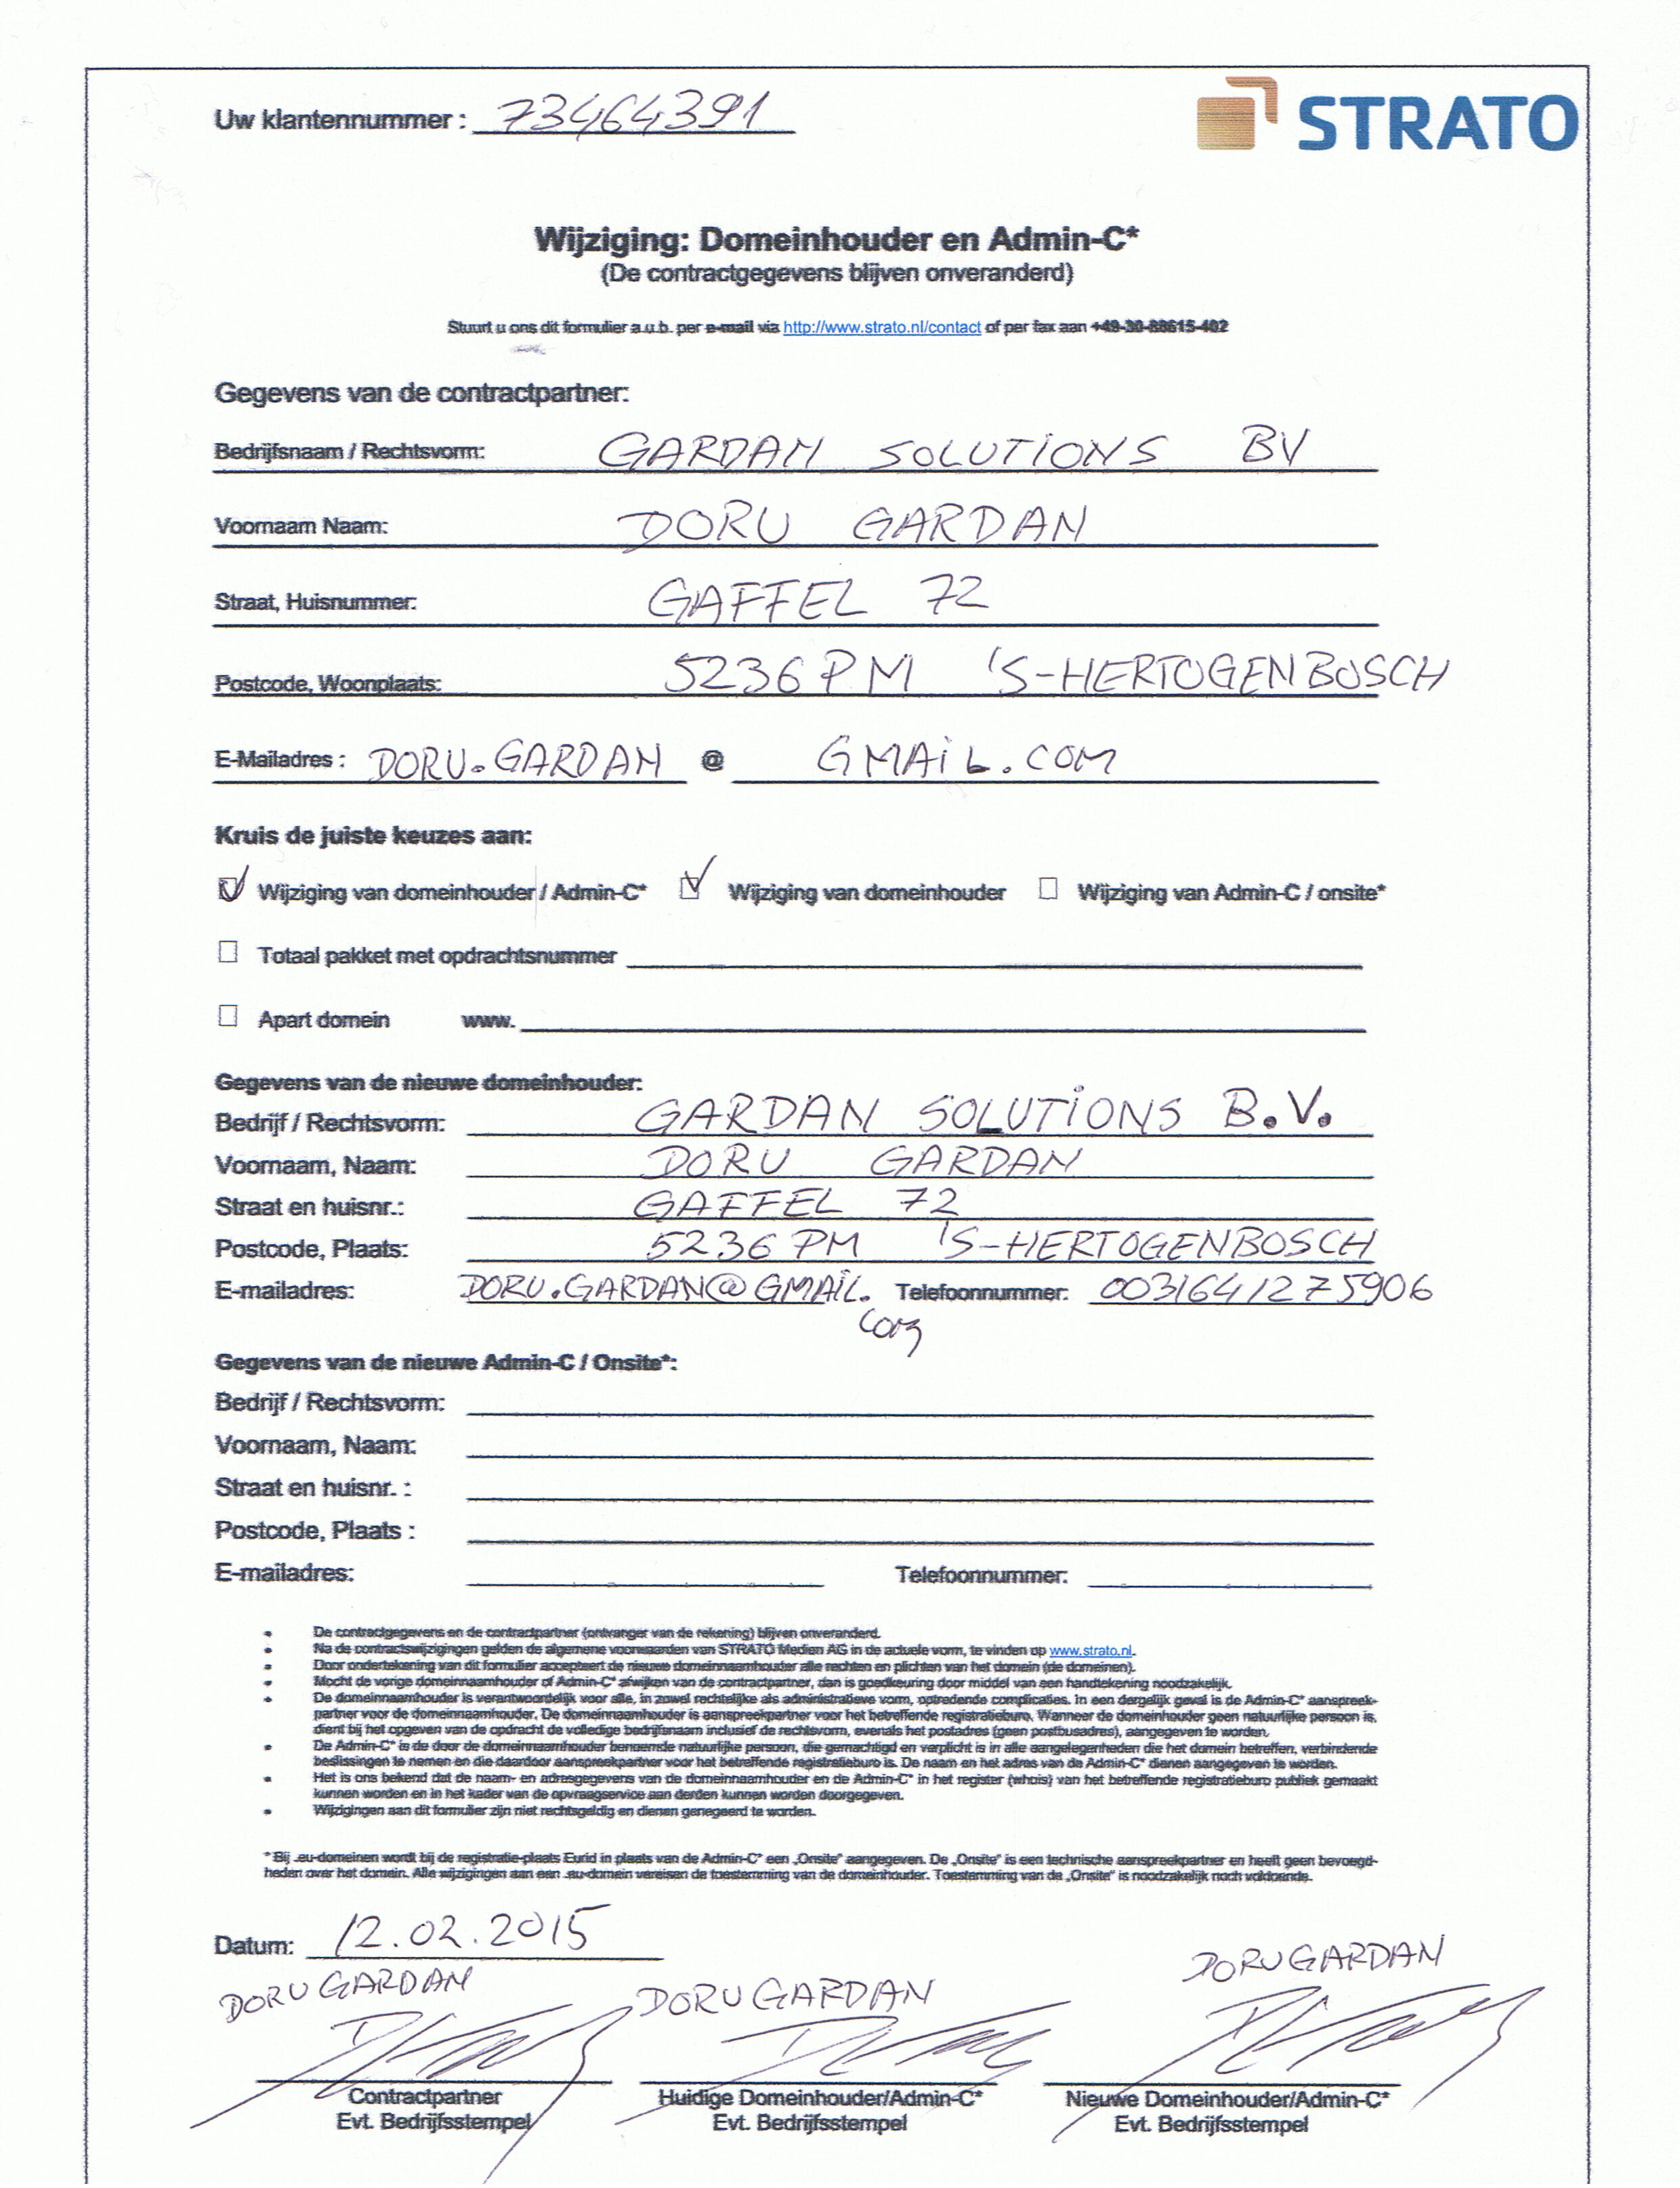 Uw klantennummer : 73464391
STRATO
Wijziging: Domeinhouder en Admin-C*
(De contractgegevens blijven onveranderd)
Stuurt u ons dit formulier a.u.b. per e-mail via http://www.strato.nl/contact of per fax aan +49-30-88615-402
Gegevens van de contractpartner:
Bedrijfsnaam / Rechtsvorm: GARDAN SOLUTIONS BV
Voornaam Naam: DORU GARDAN
Straat, Huisnummer: GAFFEL 72
Postcode, Woonplaats: 5236 PM 'S-HERTOGENBOSCH
E-Mailadres : DORU.GARDAN @ GMAIL.COM
Kruis de juiste keuzes aan:
Wijziging van domeinhouder / Admin-C* Wijziging van domeinhouder Wijziging van Admin-C / onsite*
Totaal pakket met opdrachtsnummer
Apart domein www.
Gegevens van de nieuwe domeinhouder:
Bedrijf / Rechtsvorm: GARDAN SOLUTIONS B.V.
Voornaam, Naam: DORU GARDAN
Straat en huisnr.: GAFFEL 72
Postcode, Plaats: 5236 PM 'S-HERTOGENBOSCH
E-mailadres: DORU.GARDAN@GMAIL. Telefoonnummer: 0031641275906
com
Gegevens van de nieuwe Admin-C / Onsite*:
Bedrijf / Rechtsvorm:
Voornaam, Naam:
Straat en huisnr. :
Postcode, Plaats :
E-mailadres: Telefoonnummer:
• De contractgegevens en de contractpartner (ontvanger van de rekening) blijven onveranderd.
• Na de contractswijzigingen gelden de algemene voorwaarden van STRATO Medien AG in de actuele vorm, te vinden op www.strato.nl.
• Door ondertekening van dit formulier accepteert de nieuwe domeinnaamhouder alle rechten en plichten van het domein (de domeinen).
• Mocht de vorige domeinnaamhouder of Admin-C* afwijken van de contractpartner, dan is goedkeuring door middel van een handtekening noodzakelijk.
• De domeinnaamhouder is verantwoordelijk voor alle, in zowel rechtelijke als administratieve vorm, optredende complicaties. In een dergelijk geval is de Admin-C* aanspreek-
partner voor de domeinnaamhouder. De domeinnaamhouder is aanspreekpartner voor het betreffende registratieburo. Wanneer de domeinhouder geen natuurlijke persoon is,
dient bij het opgeven van de opdracht de volledige bedrijfsnaam inclusief de rechtsvorm, evenals het postadres (geen postbusadres), aangegeven te worden.
• De Admin-C* is de door de domeinnaamhouder benoemde natuurlijke persoon, die gemachtigd en verplicht is in alle aangelegenheden die het domein betreffen, verbindende
beslissingen te nemen en die daardoor aanspreekpartner voor het betreffende registratieburo is. De naam en het adres van de Admin-C* dienen aangegeven te worden.
• Het is ons bekend dat de naam- en adresgegevens van de domeinnaamhouder en de Admin-C* in het register (whois) van het betreffende registratieburo publiek gemaakt
kunnen worden en in het kader van de opvraagservice aan derden kunnen worden doorgegeven.
• Wijzigingen aan dit formulier zijn niet rechtsgeldig en dienen genegeerd te worden.
* Bij .eu-domeinen wordt bij de registratie-plaats Eurid in plaats van de Admin-C* een „Onsite" aangegeven. De „Onsite" is een technische aanspreekpartner en heeft geen bevoegd-
heden over het domein. Alle wijzigingen aan een .eu-domein vereisen de toestemming van de domeinhouder. Toestemming van de „Onsite" is noodzakelijk noch voldoende.
Datum: 12.02.2015
DORU GARDAN DORU GARDAN DORU GARDAN
Contractpartner Huidige Domeinhouder/Admin-C* Nieuwe Domeinhouder/Admin-C*
Evt. Bedrijfsstempel Evt. Bedrijfsstempel Evt. Bedrijfsstempel